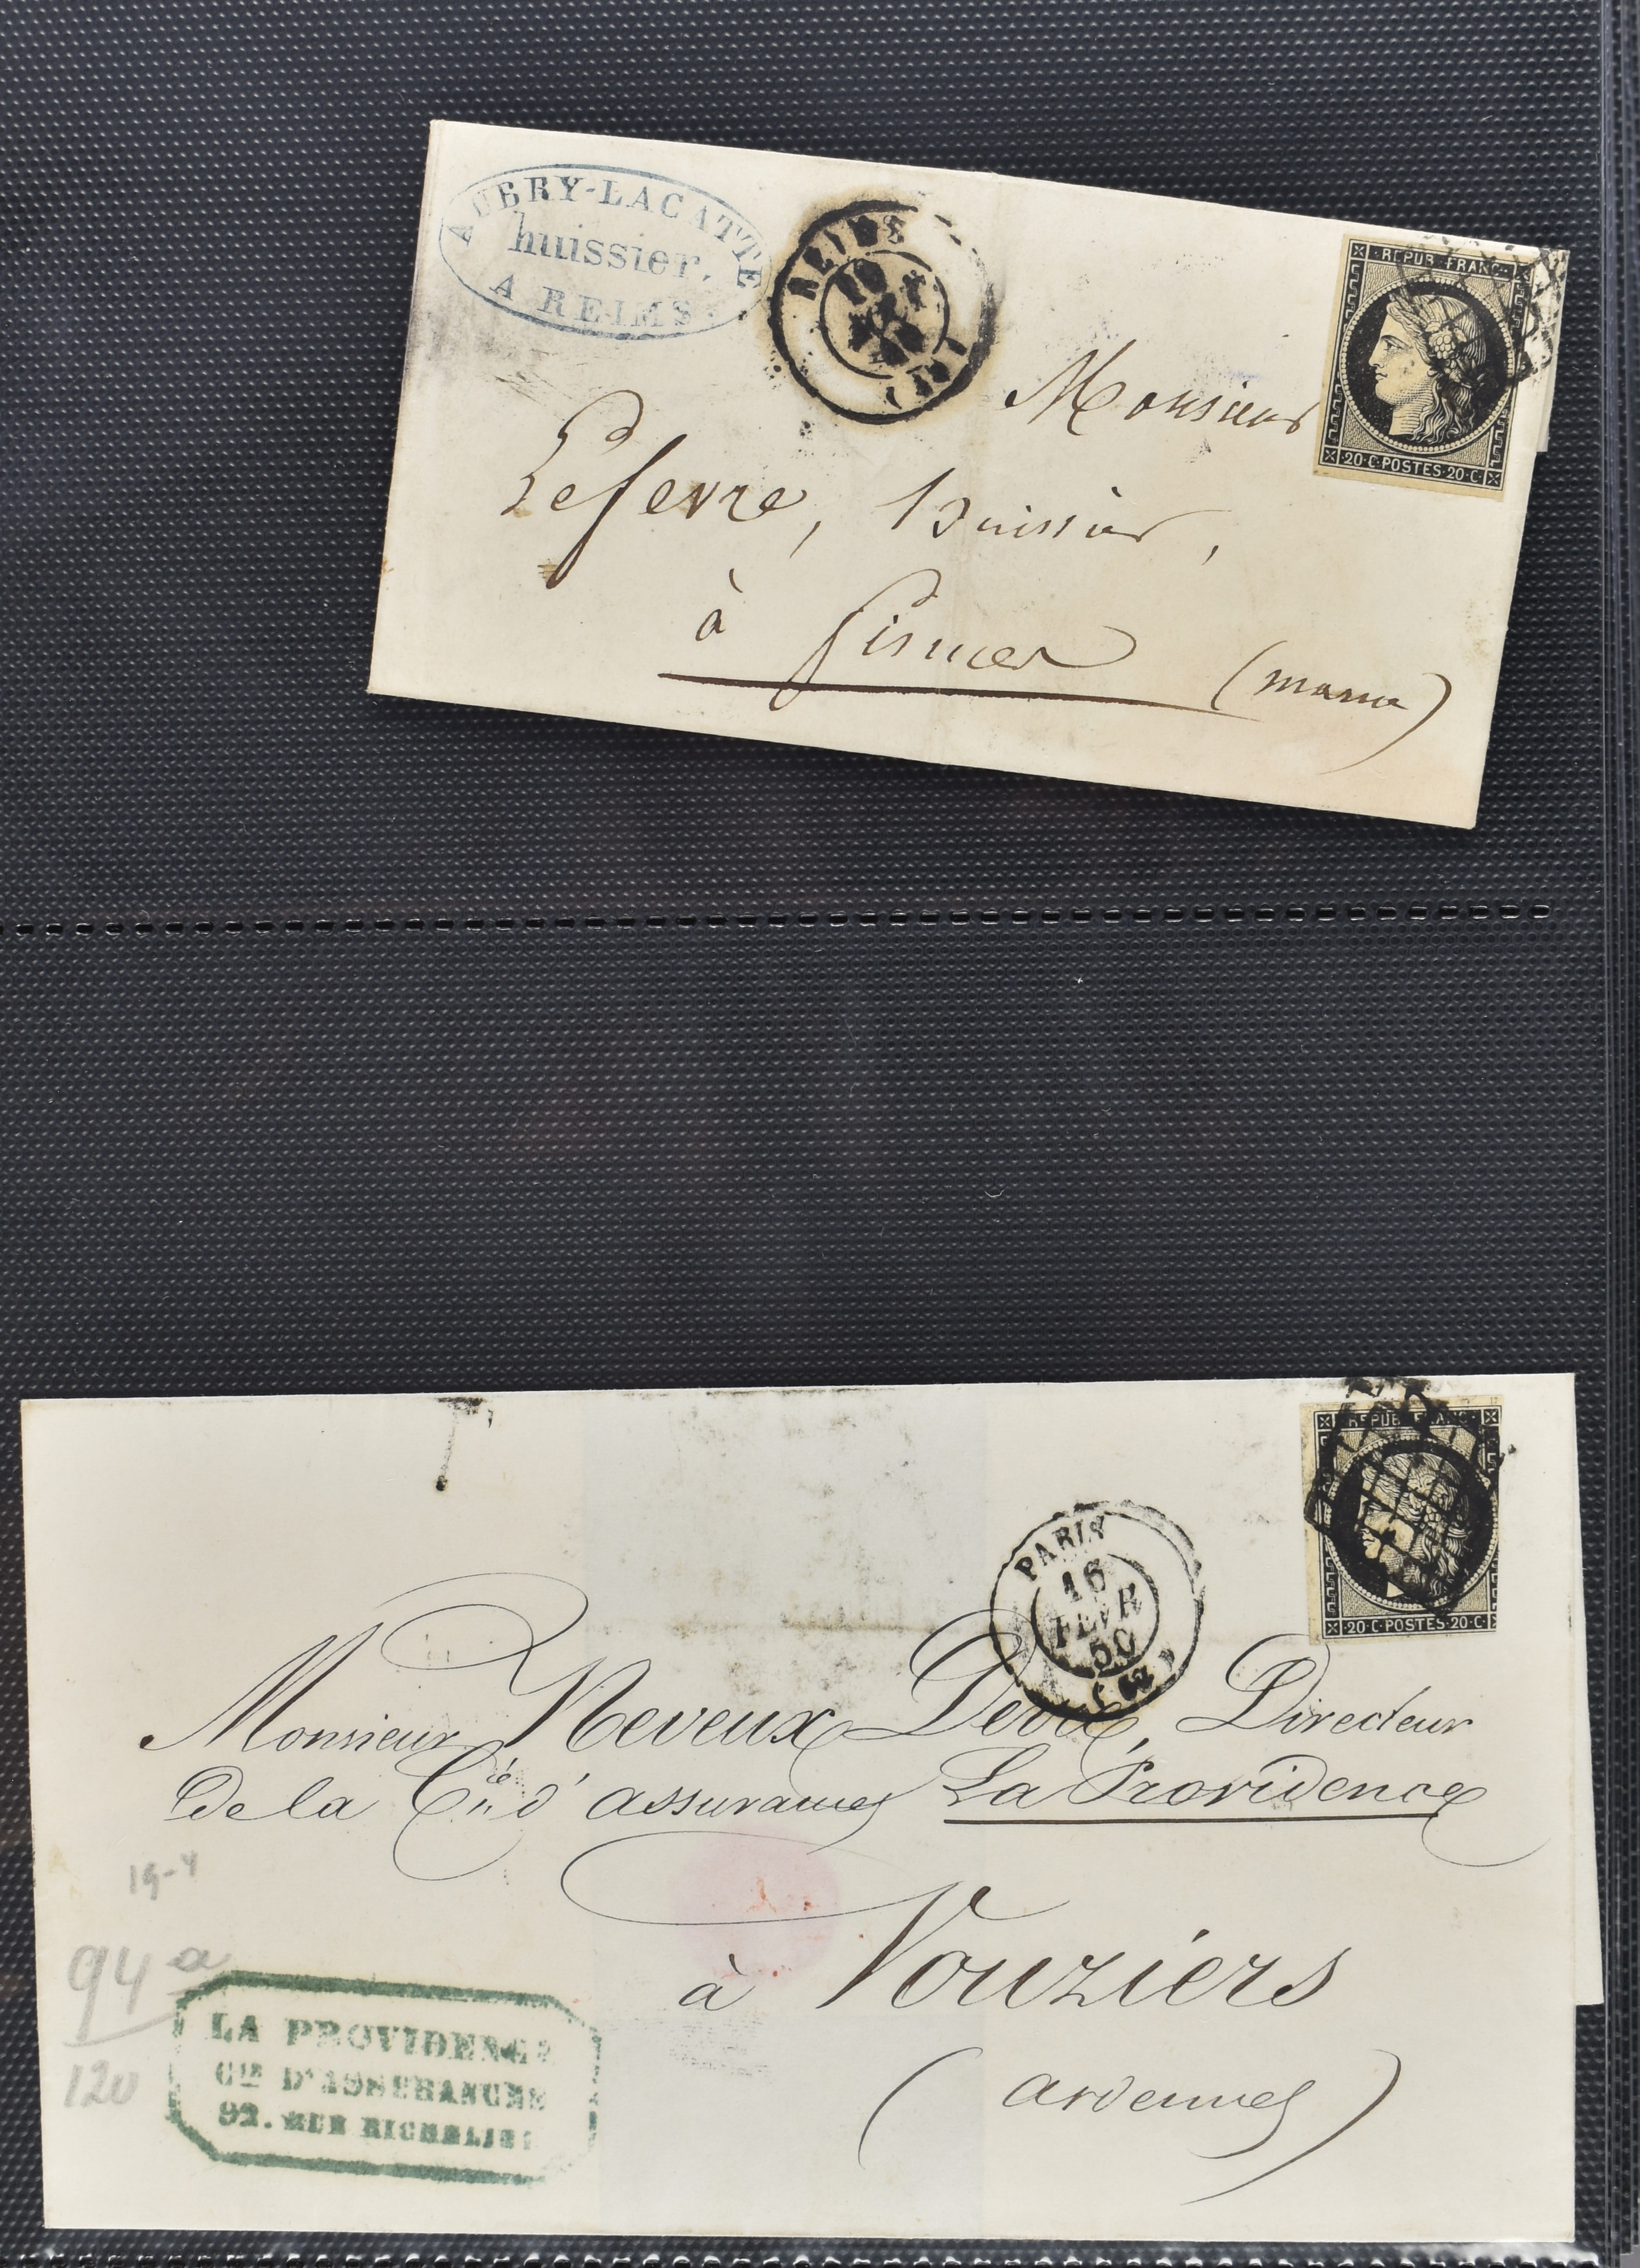 AUBRY-LACATTE
huissier,
A REIMS
REIMS
(49)
REPUB. FRANC.
20·C·POSTES·20·C·
Monsieur
Lefevre, Huissier,
à Fismes (Marne)
REPUB. FRANC.
20·C·POSTES·20·C·
PARIS
16
FEVR
50
(60)
Monsieur Neveux Directeur
de la Cie d'assurances La Providence
à Vouziers
(Ardennes)
19-4
94 a
120
LA PROVIDENCE
CIE D'ASSURANCES
92. RUE RICHELIEU